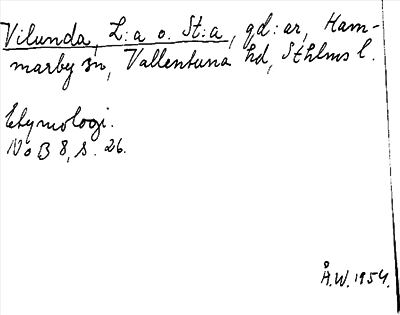 Vilunda, L:a o. St:a, gd:ar, Ham-
marby sn, Vallentuna hd, Sthlms l.
Etymologi.
NoB 8, s. 26.
Å.W. 1954.